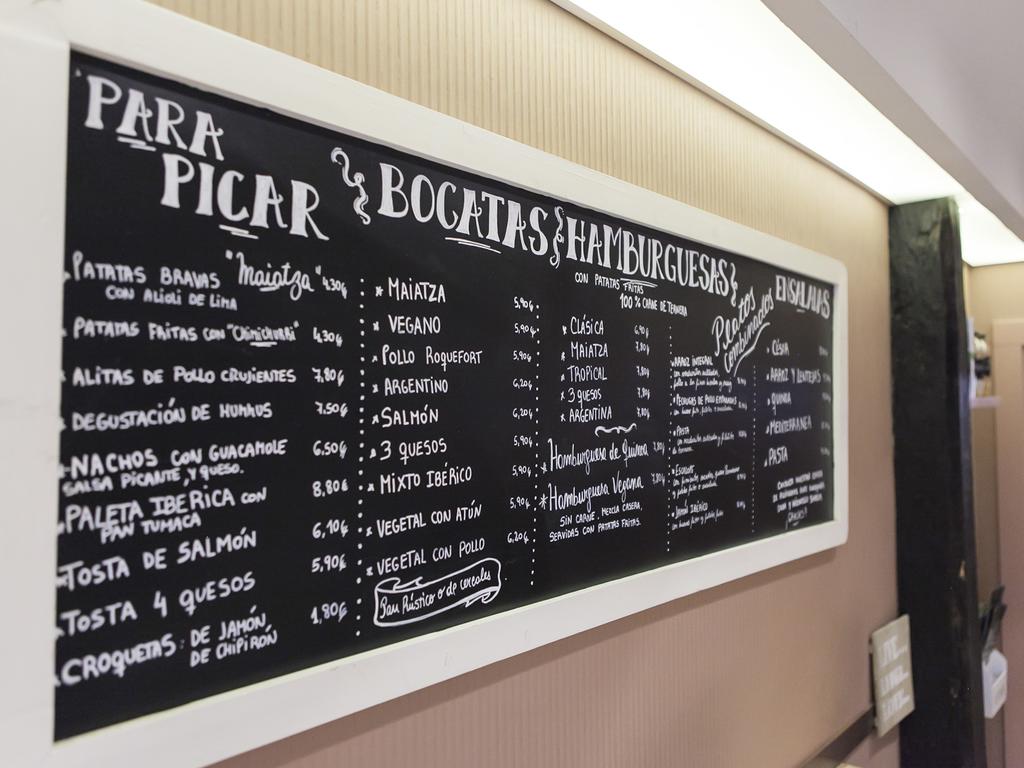 PARA
PICAR
PATATAS BRAVAS "Maiatza" 4,30€
CON ALIOLI DE LIMA
PATATAS FRITAS CON "CHIMICHURRI" 4,30€
ALITAS DE POLLO CRUJIENTES 7,80€
DEGUSTACIÓN DE HUMMUS 7,50€
NACHOS CON GUACAMOLE 6,50€
SALSA PICANTE, Y QUESO.
PALETA IBERICA CON 8,80€
PAN TUMACA
TOSTA DE SALMÓN 6,10€
TOSTA 4 QUESOS 5,90€
CROQUETAS: DE JAMÓN, 1,80€
DE CHIPIRÓN
BOCATAS
* MAIATZA 5,90€
* VEGANO 5,90€
* POLLO ROQUEFORT 5,90€
* ARGENTINO 6,20€
* SALMÓN 6,20€
* 3 QUESOS 5,90€
* MIXTO IBÉRICO 5,90€
* VEGETAL CON ATÚN 5,90€
* VEGETAL CON POLLO 6,20€
Pan Rústico o de cereales
HAMBURGUESAS
CON PATATAS FRITAS
100% CARNE DE TERNERA
* CLÁSICA 6,90€
* MAIATZA 7,80€
* TROPICAL 7,80€
* 3 QUESOS 7,80€
* ARGENTINA 7,80€
* Hamburguesa de Quinoa 7,80€
* Hamburguesa Vegana 7,80€
SIN CARNE, MEZCLA CASERA,
SERVIDAS CON PATATAS FRITAS.
Platos
combinados
* ARROZ INTEGRAL
* PECHUGAS DE POLLO EMPANADAS
* PASTA
* ESCALOPE
* JAMÓN IBÉRICO
ENSALADAS
* CÉSAR
* ARROZ Y LENTEJAS
* QUINOA
* MEDITERRANEA
* PASTA